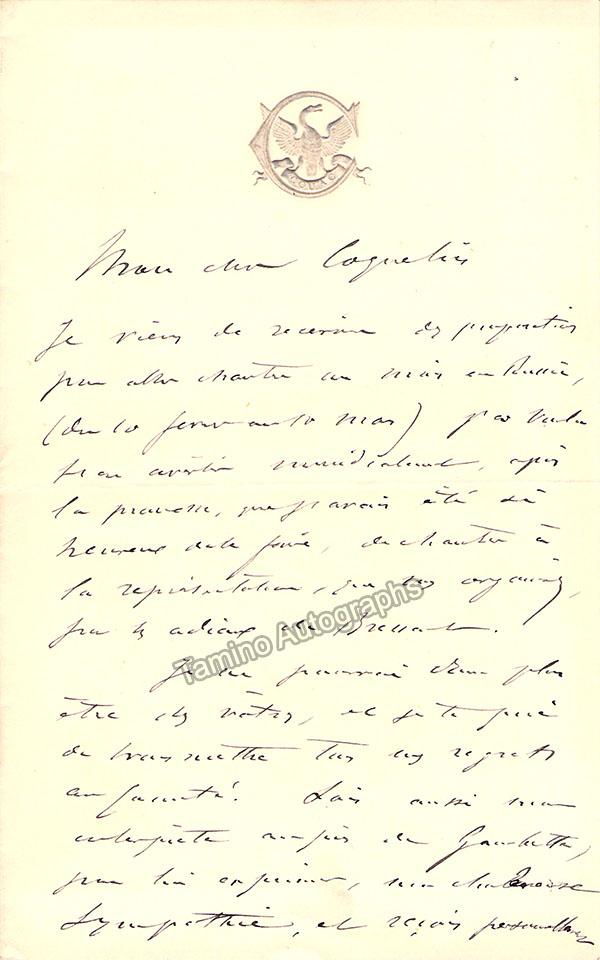 COUAC
Mon cher Coquelin
Je viens de recevoir des propositions
pour aller chanter un mois en Russie,
(du 10 février au 10 mars) j'ai voulu
t'en avertir immédiatement, après
la promesse, que j'avais été si
heureux de te faire, de chanter à
la représentation, que tu organises,
pour les adieux de Bressant.
Je ne pourrai donc plus
être des vôtres, et je te prie
de transmettre tous mes regrets
au comité. Sois aussi mon
interprète auprès de Gambetta,
pour lui exprimer, ma chaleureuse
sympathie, et reçois personnellement
Tamino Autographs